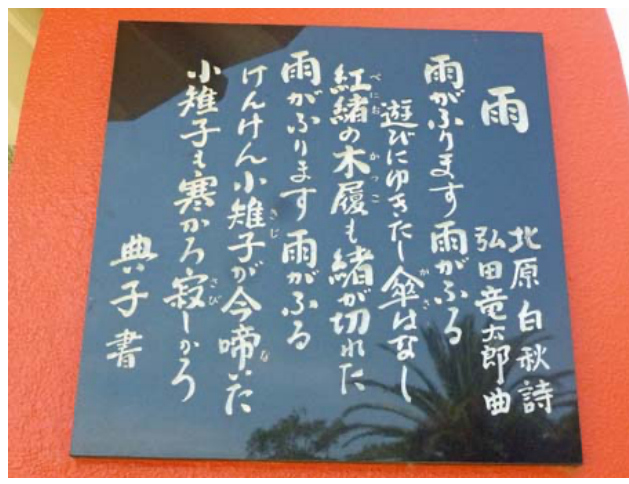 雨
北原白秋詩
弘田竜太郎曲
雨がふります 雨がふる
遊びにゆきたし 傘はなし
紅緒の木履も緒が切れた
雨がふります 雨がふる
けんけん小雉子が今啼いた
小雉子も寒かろ寂しかろ
典子書